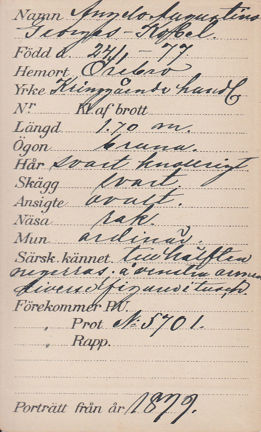 Namn Angelo Augustino
Georges-Kobel.
Född d. 24/1 - 77
Hemort Örebro
Yrke Kringgående handl.
Nr Kl. af brott
Längd 1.70 m.
Ögon bruna.
Hår svart knollerigt
Skägg svart.
Ansigte ovalt.
Näsa rak.
Mun ordinär
Särsk. kännet. till hälften
negerras. å venstra armen
diverse figurer i tusch.
Förekommer P.U.
„ Prot. No 5701.
„ Rapp.
Porträtt från år 1879.